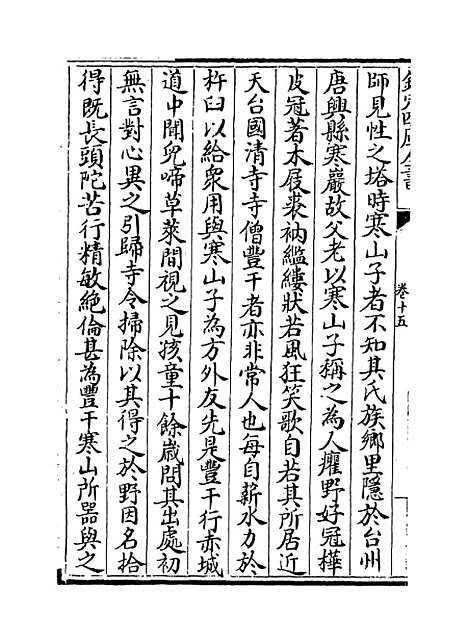 欽定四庫全書
卷十五
師見性之塔時寒山子者不知其氏族鄉里隱於台州
唐興縣寒巖故父老以寒山子稱之為人癯野好冠樺
皮冠著木屐裘衲繿縷狀若風狂笑歌自若其所居近
天台國清寺寺僧豐干者亦非常人也每自薪水力於
杵臼以給衆用與寒山子為方外友先是豐干行赤城
道中聞兒啼草萊間視之見孩童十餘歲問其出處初
無言對心異之引歸寺令掃除以其得之於野因名拾
得既長頭陀苦行精敏絶倫甚為豐干寒山所器與之